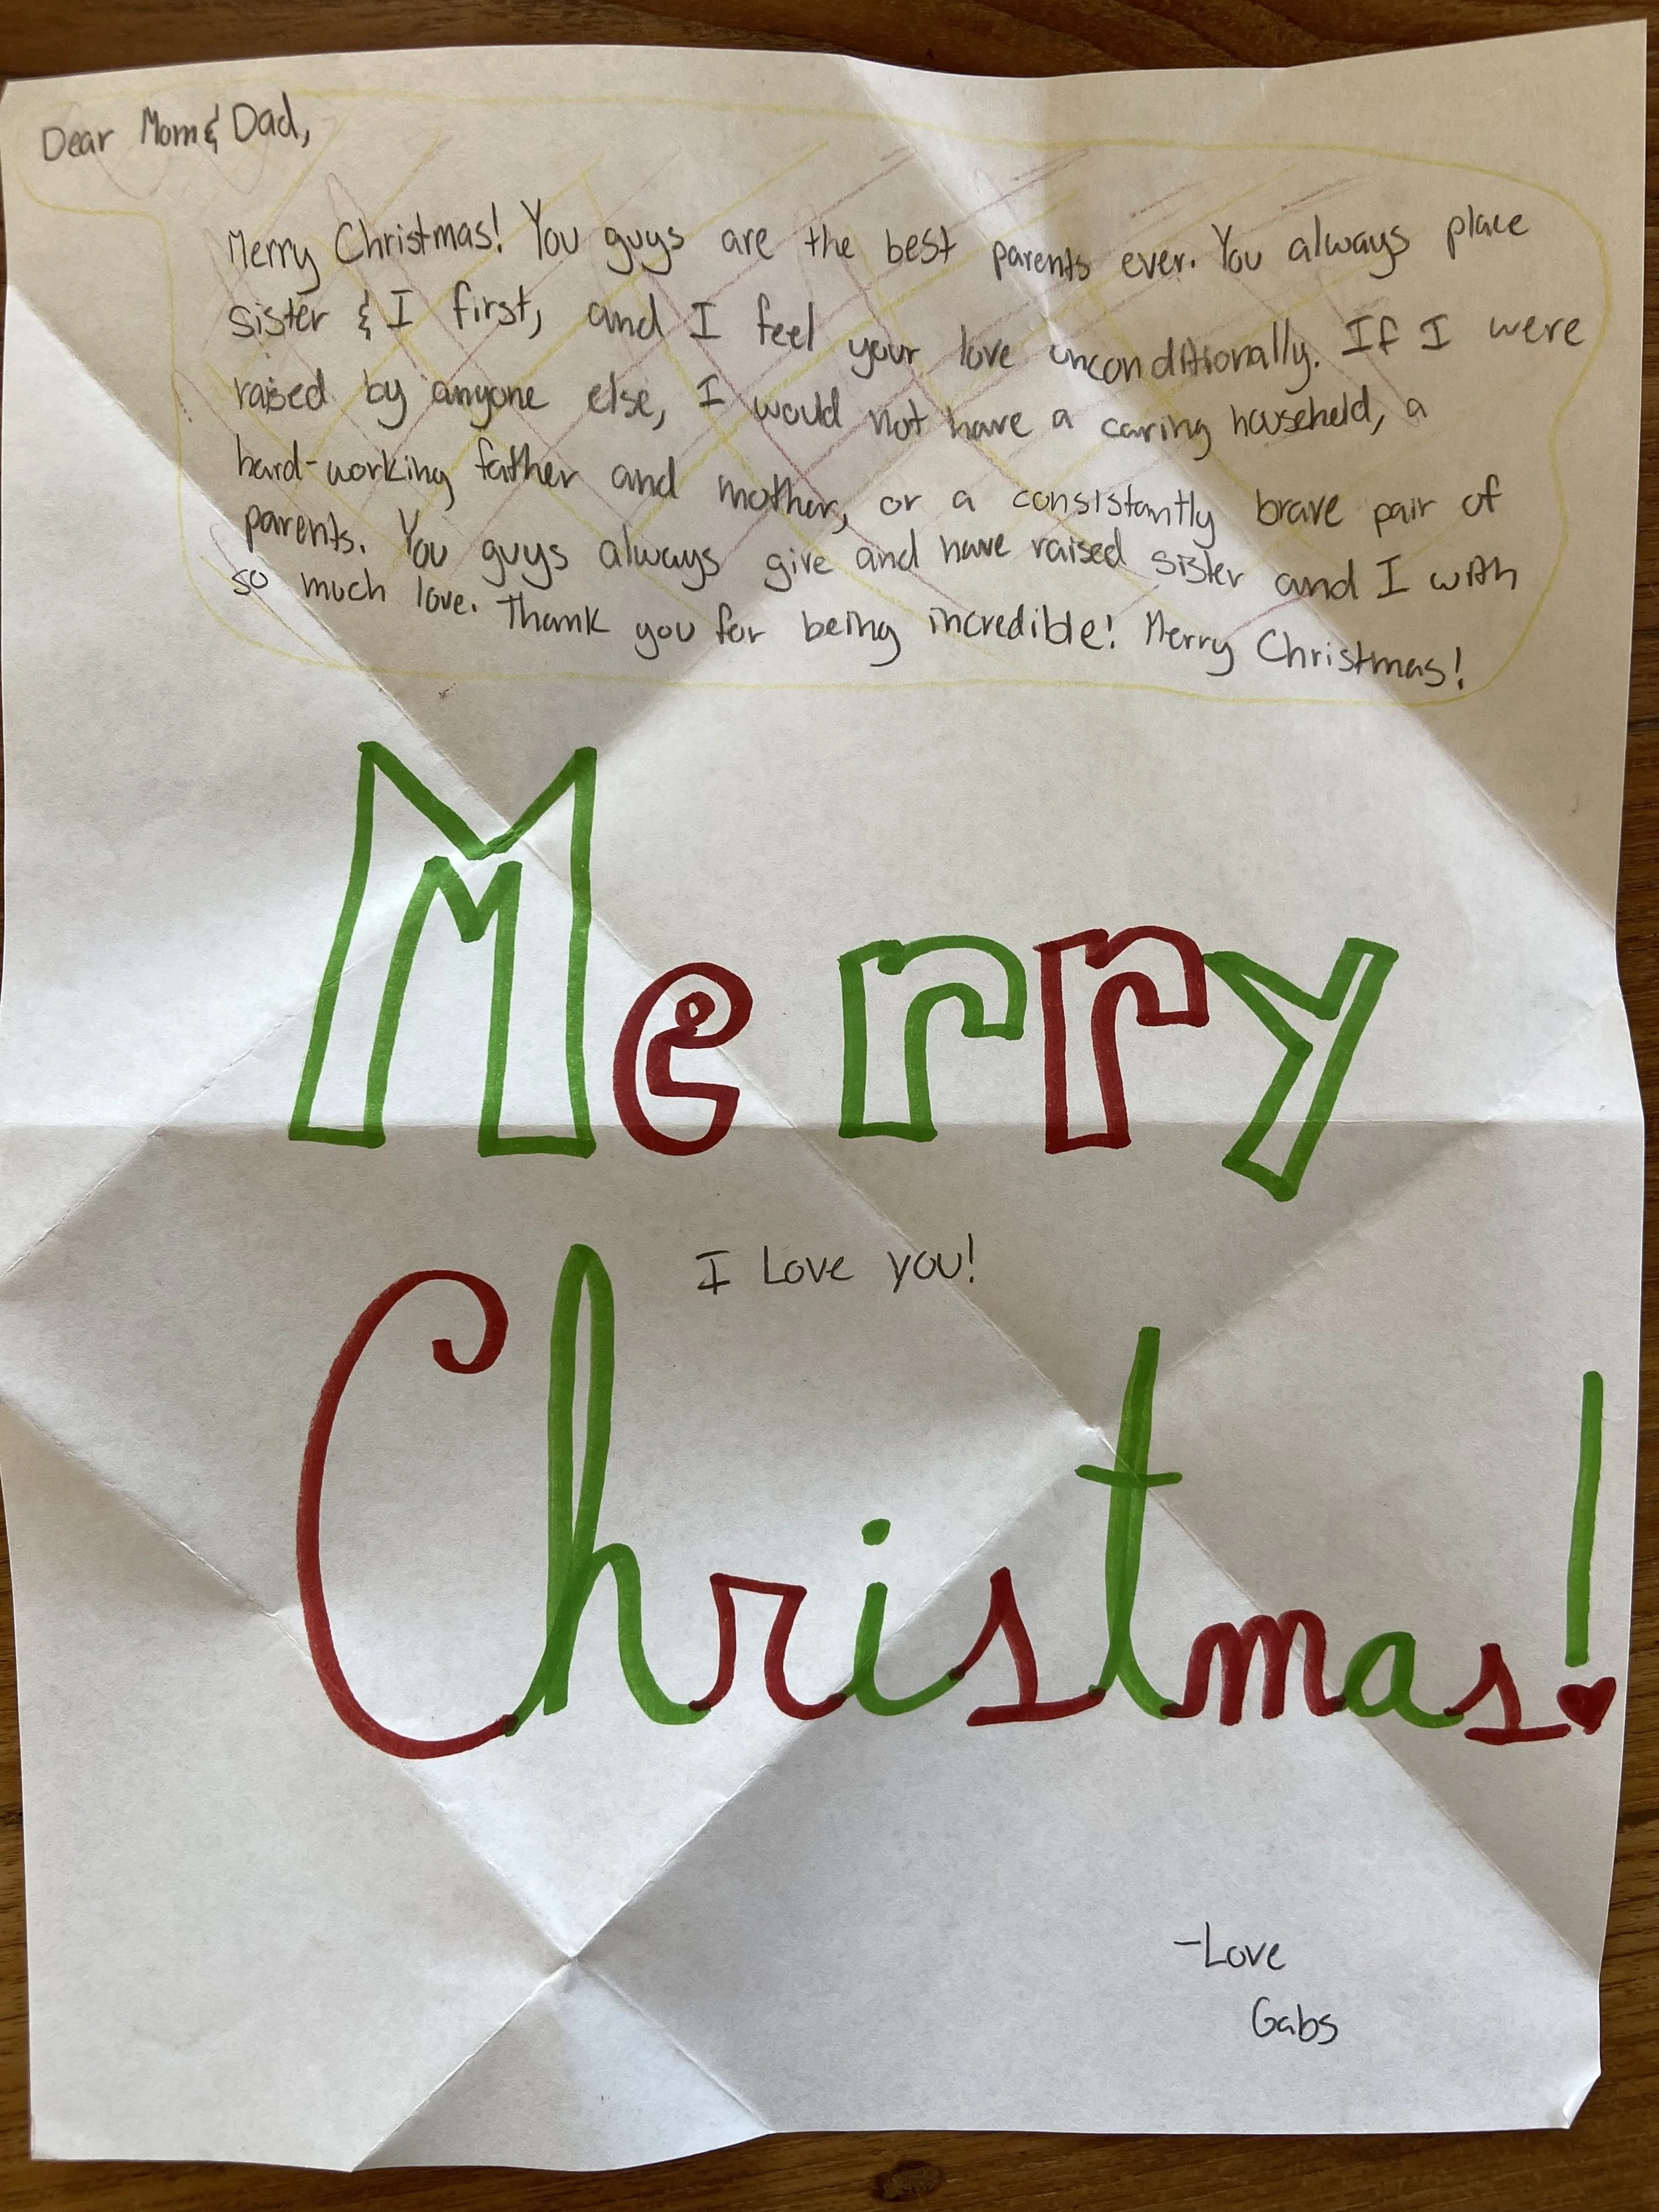 Dear Mom & Dad,
Merry Christmas! You guys are the best parents ever. You always place
sister & I first, and I feel your love unconditionally. If I were
raised by anyone else, I would not have a caring household, a
hard-working father and mother, or a consistantly brave pair of
parents. You guys always give and have raised sister and I with
so much love. Thank you for being incredible! Merry Christmas!
Merry
I Love you!
Christmas!
-Love
Gabs